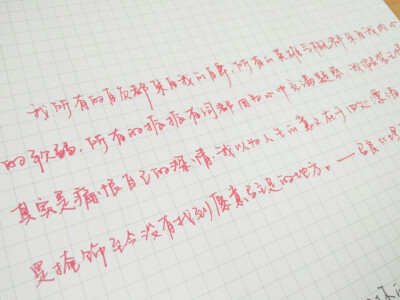 我所有的自负都来自我的自卑，所有的英雄气概都来自我内心
的软弱，所有的振振有词都因为心中充满疑惑。我假装无情
其实是痛恨自己的深情。我以为人生的意义在于四处漂流
是掩饰至今没有找到愿意驻足的地方。——